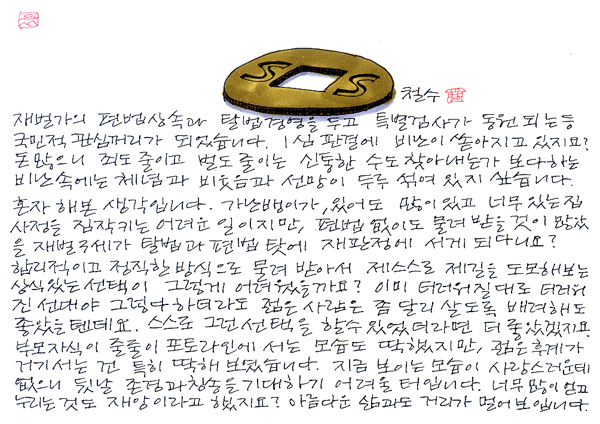 S S
철수
재벌가의 편법상속과 탈법경영을 두고 특별검사가 동원 되는 등
국민적 관심꺼리가 되었습니다. 1심 판결에 비난이 쏟아지고 있지요?
돈 많으니 죄도 줄이고 벌도 줄이는 신통한 수도 찾아내는가 보다 하는
비난 속에는 체념과 비웃음과 선망이 두루 섞여 있지 싶습니다.
혼자 해본 생각입니다. 가난뱅이가, 있어도 많이 있고 너무 있는 집
사정을 짐작키는 어려운 일이지만, 편법 없이도 물려 받을 것이 많았
을 재벌 2세가 탈법과 편법 탓에 재판정에 서게 되다니요?
합리적이고 정직한 방식으로 물려 받아서 제 스스로 제길을 도모해보는
상식있는 선택이 그렇게 어려웠을까요? 이미 더러워질대로 더러워
진 선대야 그렇다 하더라도 젊은 사람은 좀 달리 살도록 배려해도
좋았을텐데요. 스스로 그런 선택을 할 수 있었더라면 더 좋았겠지요.
부모자식이 줄줄이 포토라인에 서는 모습도 딱했지만, 젊은 후계가
거기 서는 건 특히 딱해 보였습니다. 지금 보이는 모습이 사랑스러운 데
없으니 뒷날 존경과 칭송을 기대하기 어려울 터입니다. 너무 많이 얻고
누리는 것도 재앙이라고 했지요? 아름다운 삶과도 거리가 멀어 보입니다.